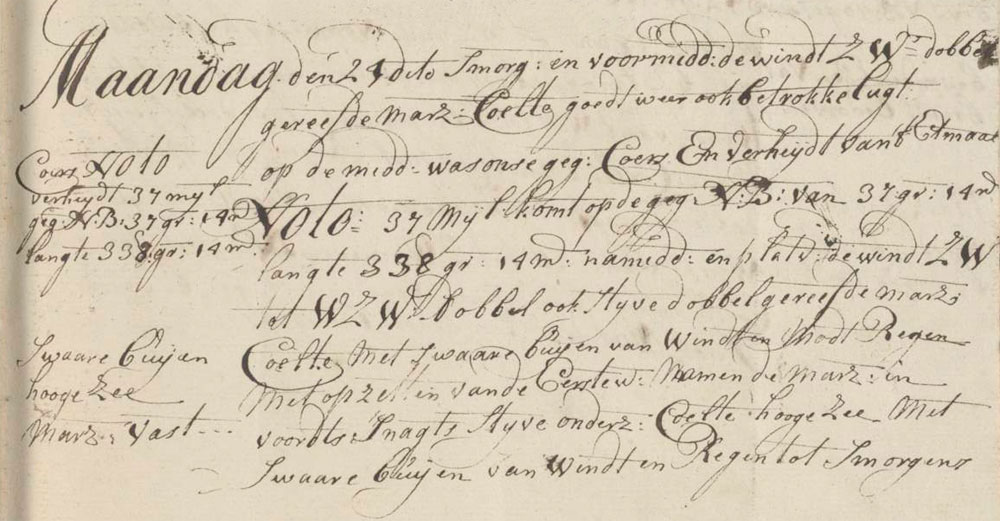 Maandag den 24 dito Smorg: en voormidd: de windt Z Wt. dobbel
gereefde Marz: Coelte goedt weer ook betrokke lugt
op de midd: was onse geg: Coers En verheydt van 't Etmaal
Coers NOtO
verheydt 37 myl
geg: N:B: 37 gr: 14 m
langte 338: gr: 14 m
NOtO: 37 Myl komt op de geg N:B: van 37: gr: 14 m
langte 338 gr: 14 m: namidd: en platv: de windt Z W
tot WZW dobbel ook styve dobbel gereefde marz:
Swaare Buijen
hooge Zee
Marz: vast
Coelte Met swaare Buijen van Windt en Modt Regen
Met op zetten van de Eerste w: Namen de marz: in
voordts: Snagts styve onderz: Coelte hooge Zee Met
Swaare Buijen van Windt en Regen tot Smorgens